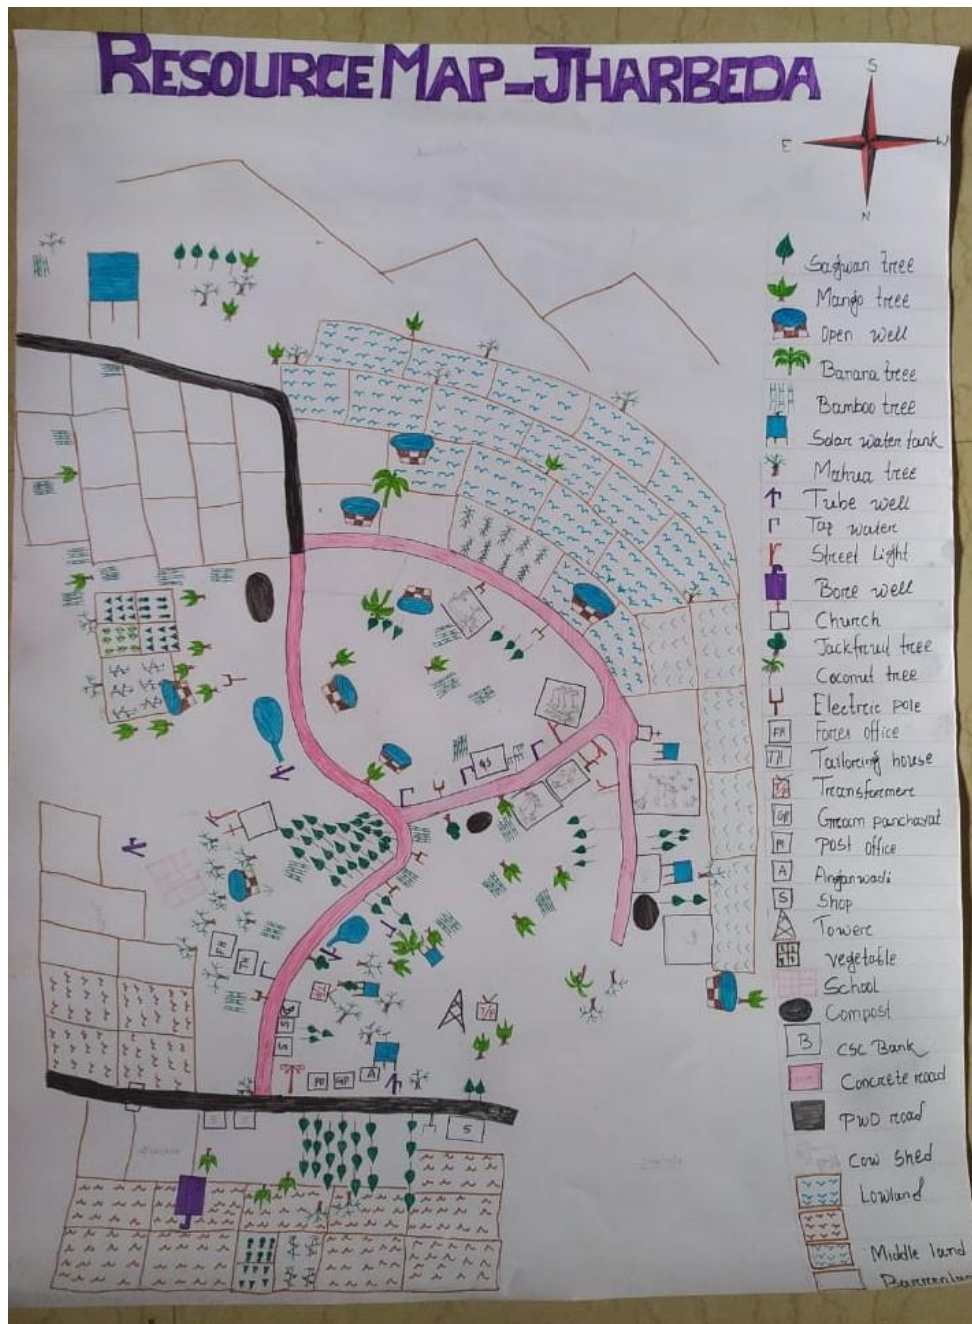 RESOURCE MAP-JHARBEDA
S
E
W
N
Sagwan tree
Mango tree
Open well
Banana tree
Bamboo tree
Solar water tank
Mahua tree
Tube well
Tap water
Street Light
Bore well
Church
Jackfruit tree
Coconut tree
Electric pole
FH
office
TH
Tailoring house
T/F
Transformer
GP
Gream panchayat
PO
Post office
A
Anganwadi
S
Shop
Tower
vegetable
School
Compost
B
CSC Bank
Concrete road
PWD road
Cow shed
Lowland
Middle land
FH
TH
S
S
T/F
T/F
PO
GP
A
S